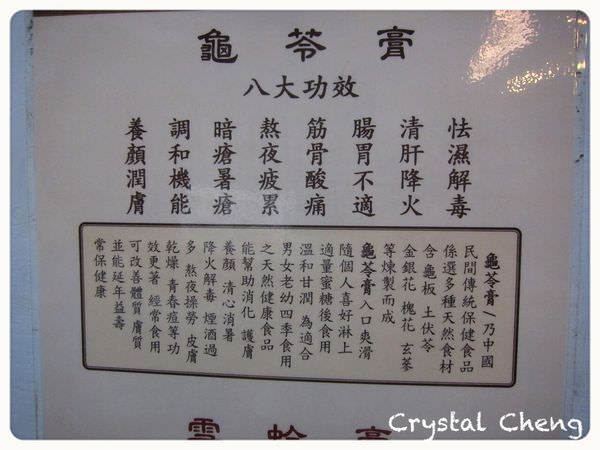 龜苓膏
八大功效
怯濕解毒
清肝降火
腸胃不適
筋骨酸痛
熬夜疲累
暗瘡暑瘡
調和機能
養顏潤膚
龜苓膏/乃中國
民間傳統保健食品
係選多種天然食材
含 龜板 土伏苓
金銀花 槐花 玄蔘
等煉製而成
龜苓膏入口爽滑
隨個人喜好淋上
適量蜜糖後食用
溫和甘潤 為適合
男女老幼四季食用
之天然健康食品
能幫助消化 護膚
養顏 清心消暑
降火解毒 煙酒過
多 熬夜操勞 皮膚
乾燥 青春痘等功
效更著 經常食用
可改善體質膚質
並能延年益壽
常保健康
雪蛤膏
Crystal Cheng